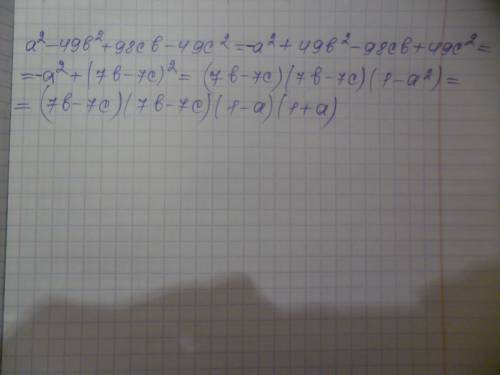 a² - 49в² + 98cв - 49c² = -a² + 49в² - 98cв + 49c² =
= -a² + (7в - 7c)² = (7в - 7c)(7в - 7c)(1 - a²) =
= (7в - 7c)(7в - 7c)(1 - a)(1 + a)